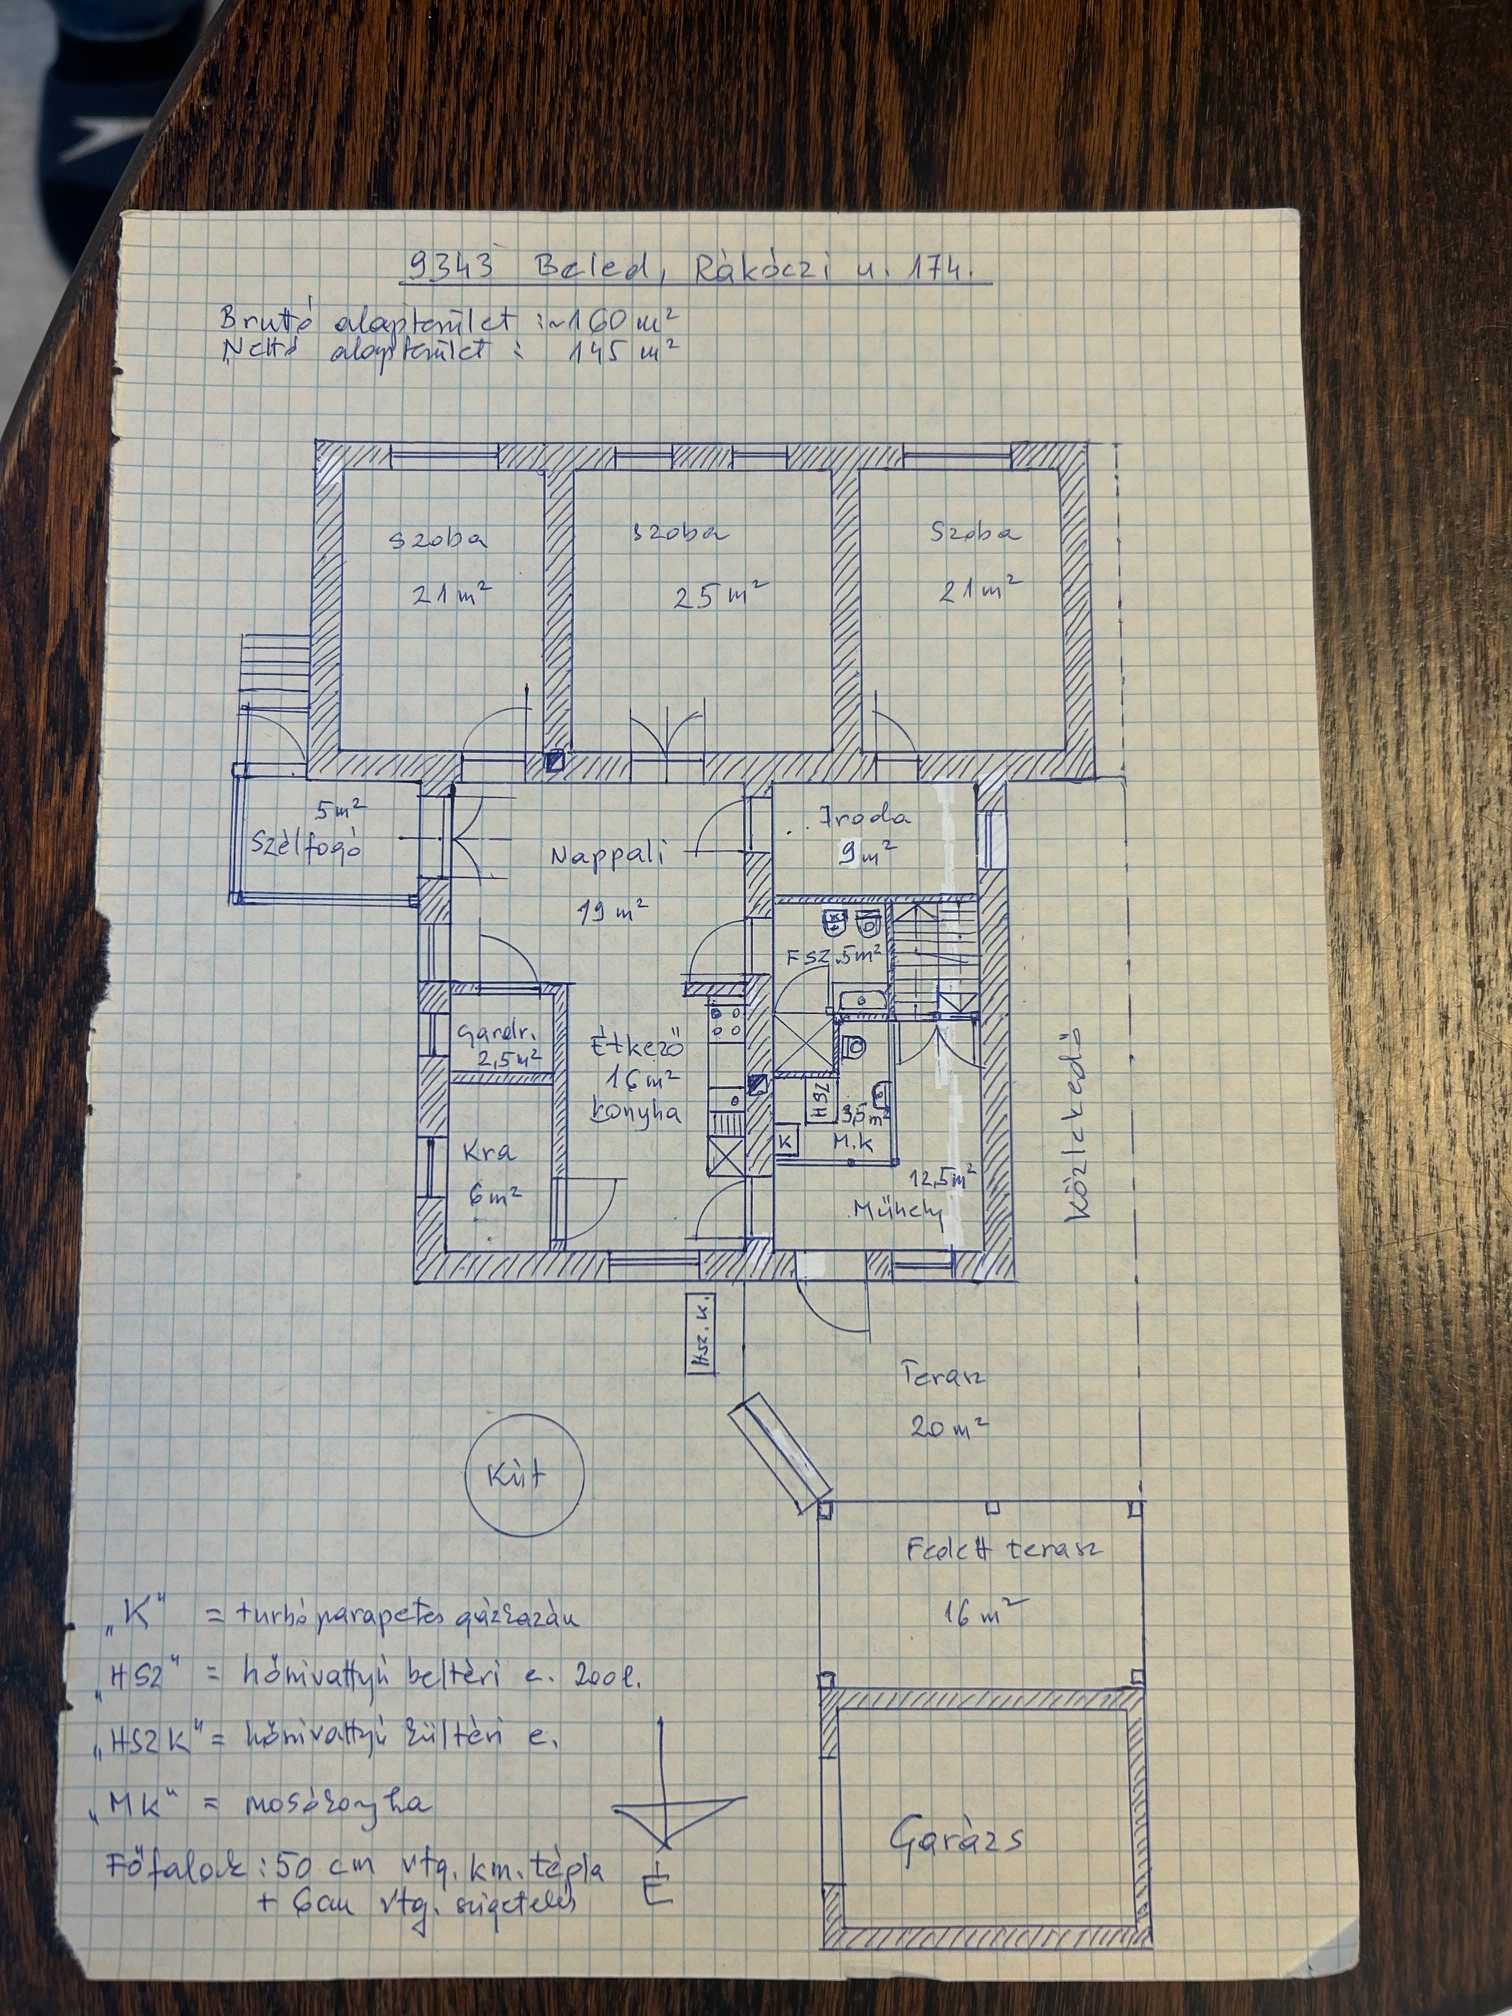 9343 Beled, Rákóczi u. 174.
Bruttó alapterület :~160 m²
Nettó alapterület : 145 m²
Szoba
21 m²
Szoba
25 m²
Szoba
21 m²
5 m²
Szélfogó
Nappali
19 m²
Iroda
9 m²
FSZ. 5 m²
Gardr.
2,5 m²
Étkező
16 m²
konyha
HSZ
3,5 m²
K
M.k
Kra
6 m²
12,5 m²
Műhely
Közlekedő
HSZ. K.
Terasz
20 m²
Kút
Fedett terasz
16 m²
„K" = turbó parapetes gázkazán
„HSZ" = hőszivattyú beltéri e. 200 l.
„HSZK" = hőszivattyú kültéri e.
„MK" = mosókonyha
Főfalak : 50 cm vtg. km. tégla
+ 6 cm vtg. szigetelés
É
Garázs